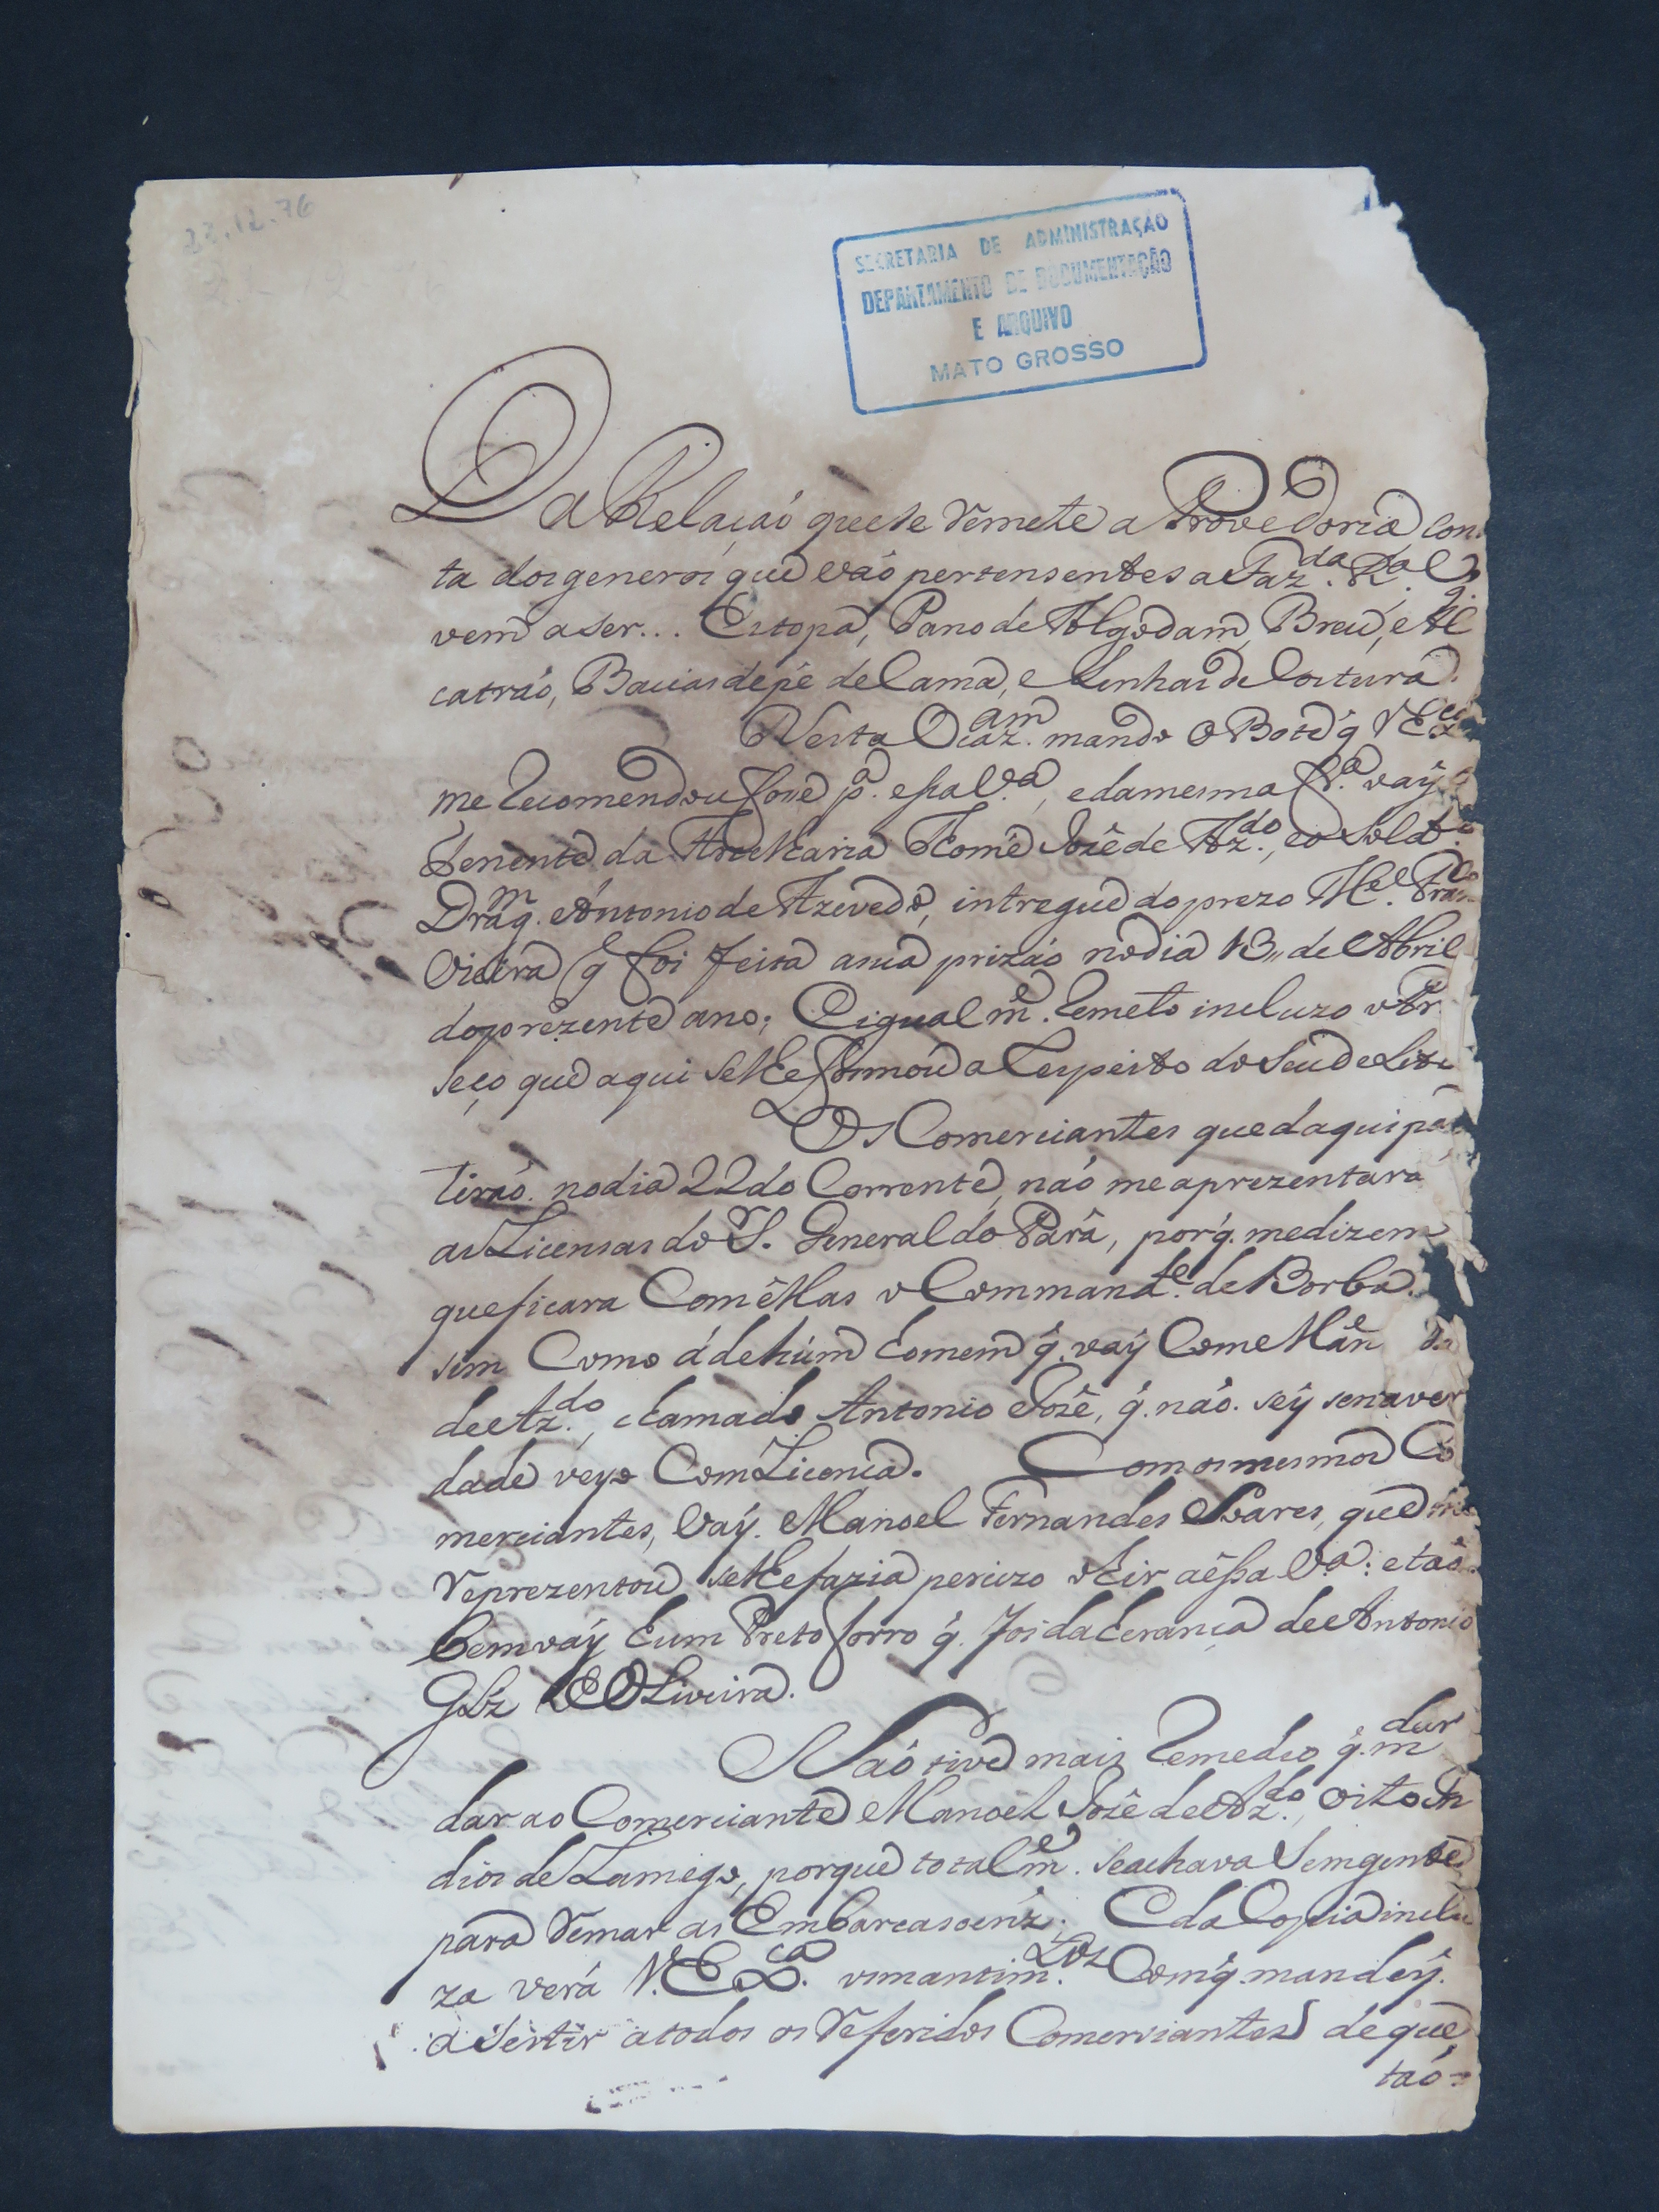 22.12.76
SECRETARIA DE ADMINISTRAÇÃO
DEPARTAMENTO DE DOCUMENTAÇÃO
E ARQUIVO
MATO GROSSO
Da Relaçaó que se remete a Provedoria Cons
ta dos generos que vaó pertensentes a Fazda. Rl. e q.
vem a ser... Estopa, Pano de Algodam, Breu, e Al
catraó, Bacias de pé de Cama, e Linhas de Costura.
Nesta Ocazam. mando o Bote q̃ VEx
me recomendou foce pa. essa Va., e da mesma fa. vaÿ
Tenente da Artelharia Thomé Jozê de Azdo., e o Solo.
Dragm. Antonio de Azevedo, intregue do prezo Mel. Fran
Vieira q̃ foi feita a sua prizaó no dia 13,, de Abril
do prezente ano; E igualme. remeto incluzo o Pr
seço que aqui se lhe formou a respeito do Seu delito
Os Comerciantes que daqui par
tiraó no dia 22 do Corrente, naó me aprezentará
as Licensas do Sr. General do Pará, porq̃. me dizem
que ficara Com êllas o Commande. de Borba.
sim Como á de húm homem q̃. vaÿ Com e Mân
de Azdo., chamado Antonio Jozê, q̃. naó sêÿ se na ver
dade veyo Com Licença. Com os mesmos Co
merciantes, Vaÿ. Manoel Fernandes Soares, que me
reprezentou se lhe fazia percizo o hir aêssa Va.: e taó
bem vaÿ hum Preto forro q̃. foi da herança de Antonio
Glz de Oliveira.
Naó tive mais remedio q̃. m
dar ao Comerciante Manoel Jozê de Azdo., oito In
dios de Lamego, porque totalme. se achava Sem gente
para remar as Embarcasoens. E da Copia inclu
za verá V. Exca. os mantimtos. Com q̃. mandeÿ.
asestir a todos os referidos Comerciantes de que
taó=